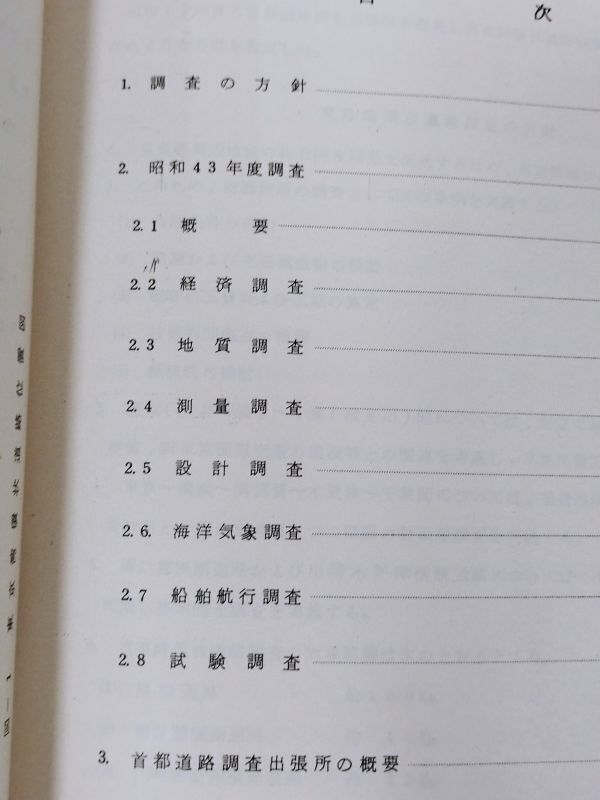 次
1. 調査の方針
2. 昭和43年度調査
2.1 概要
2.2 経済調査
2.3 地質調査
2.4 測量調査
2.5 設計調査
2.6. 海洋気象調査
2.7 船舶航行調査
2.8 試験調査
3. 首都道路調査出張所の概要